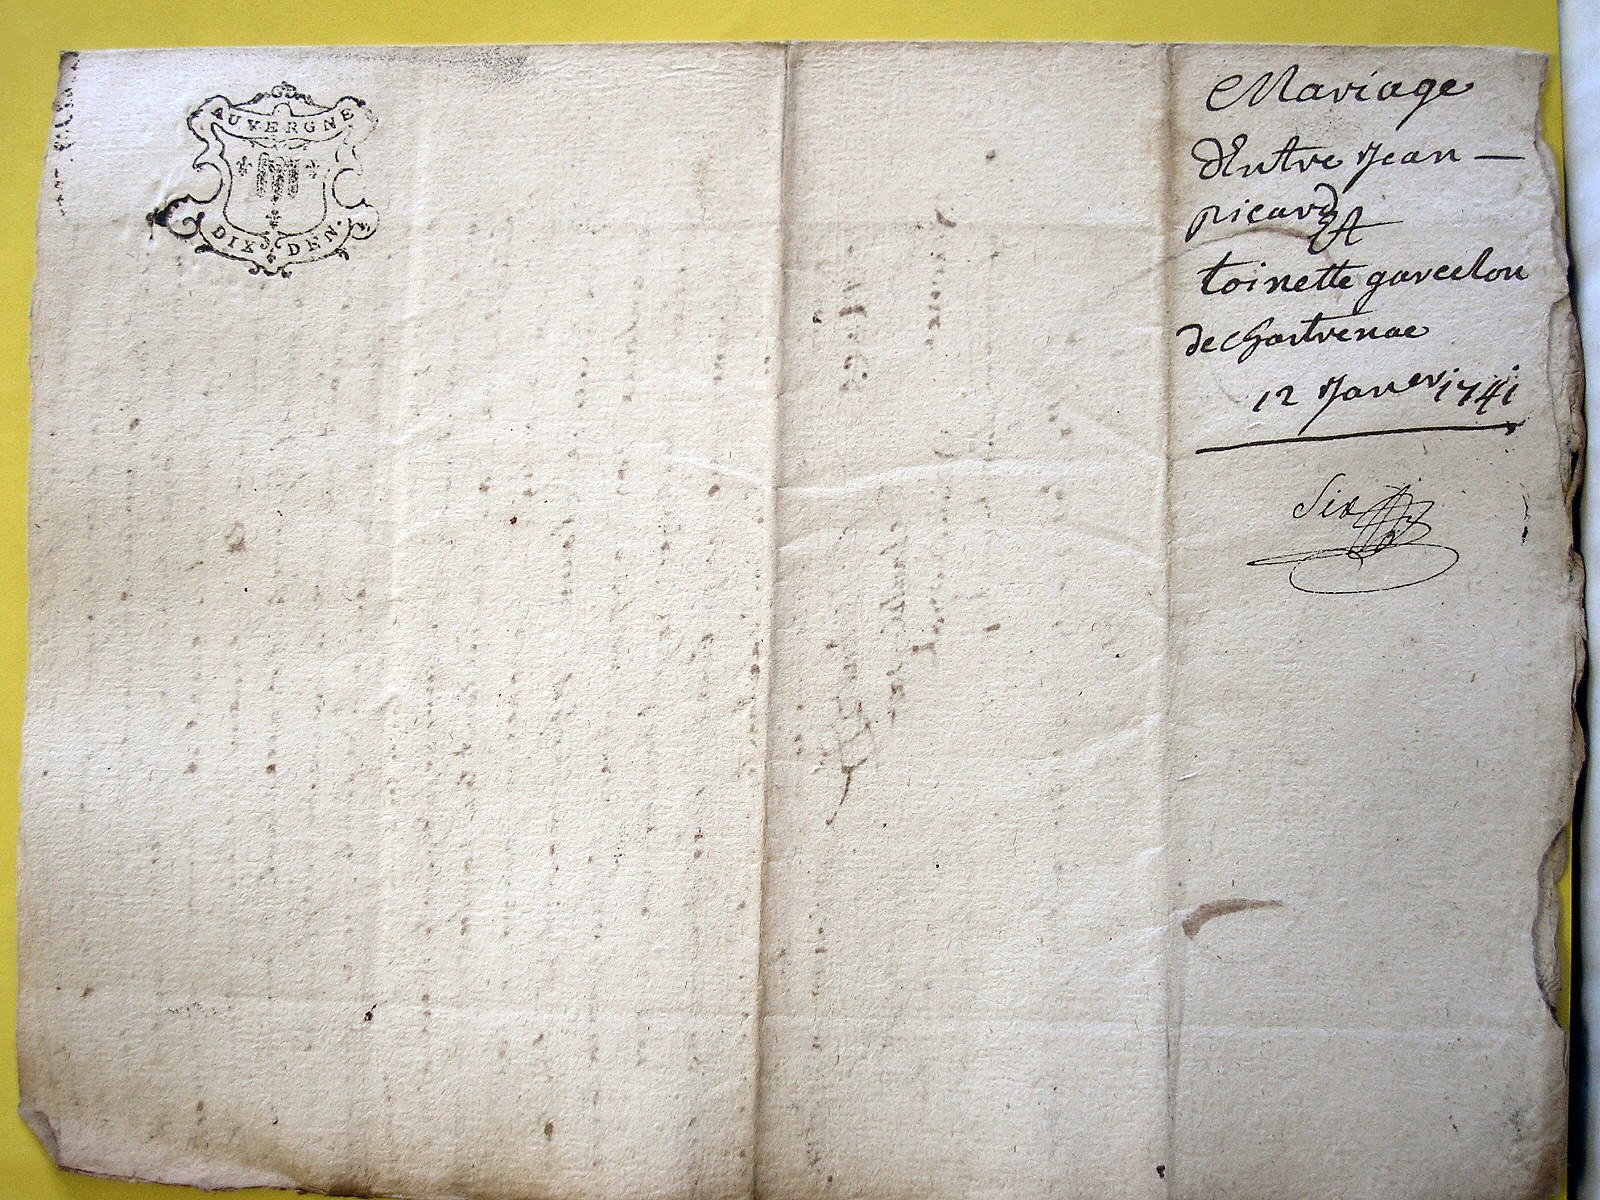 AUVERGNE
DIX DEN.
Mariage
d'Entre Jean —
picard Et
toinette garcelon
de Chartrenac
12 Janer 1741
Six